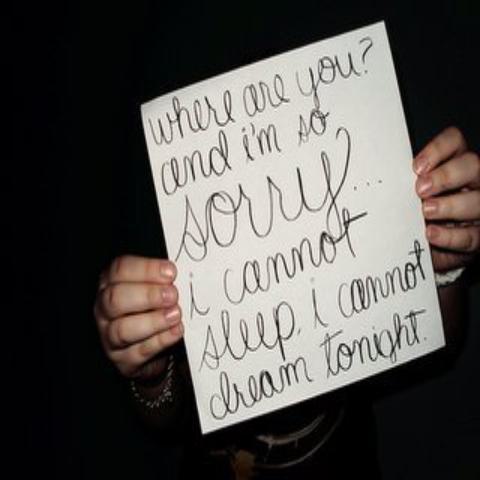 where are you?
and i'm so
sorry...
i cannot
sleep. i cannot
dream tonight.